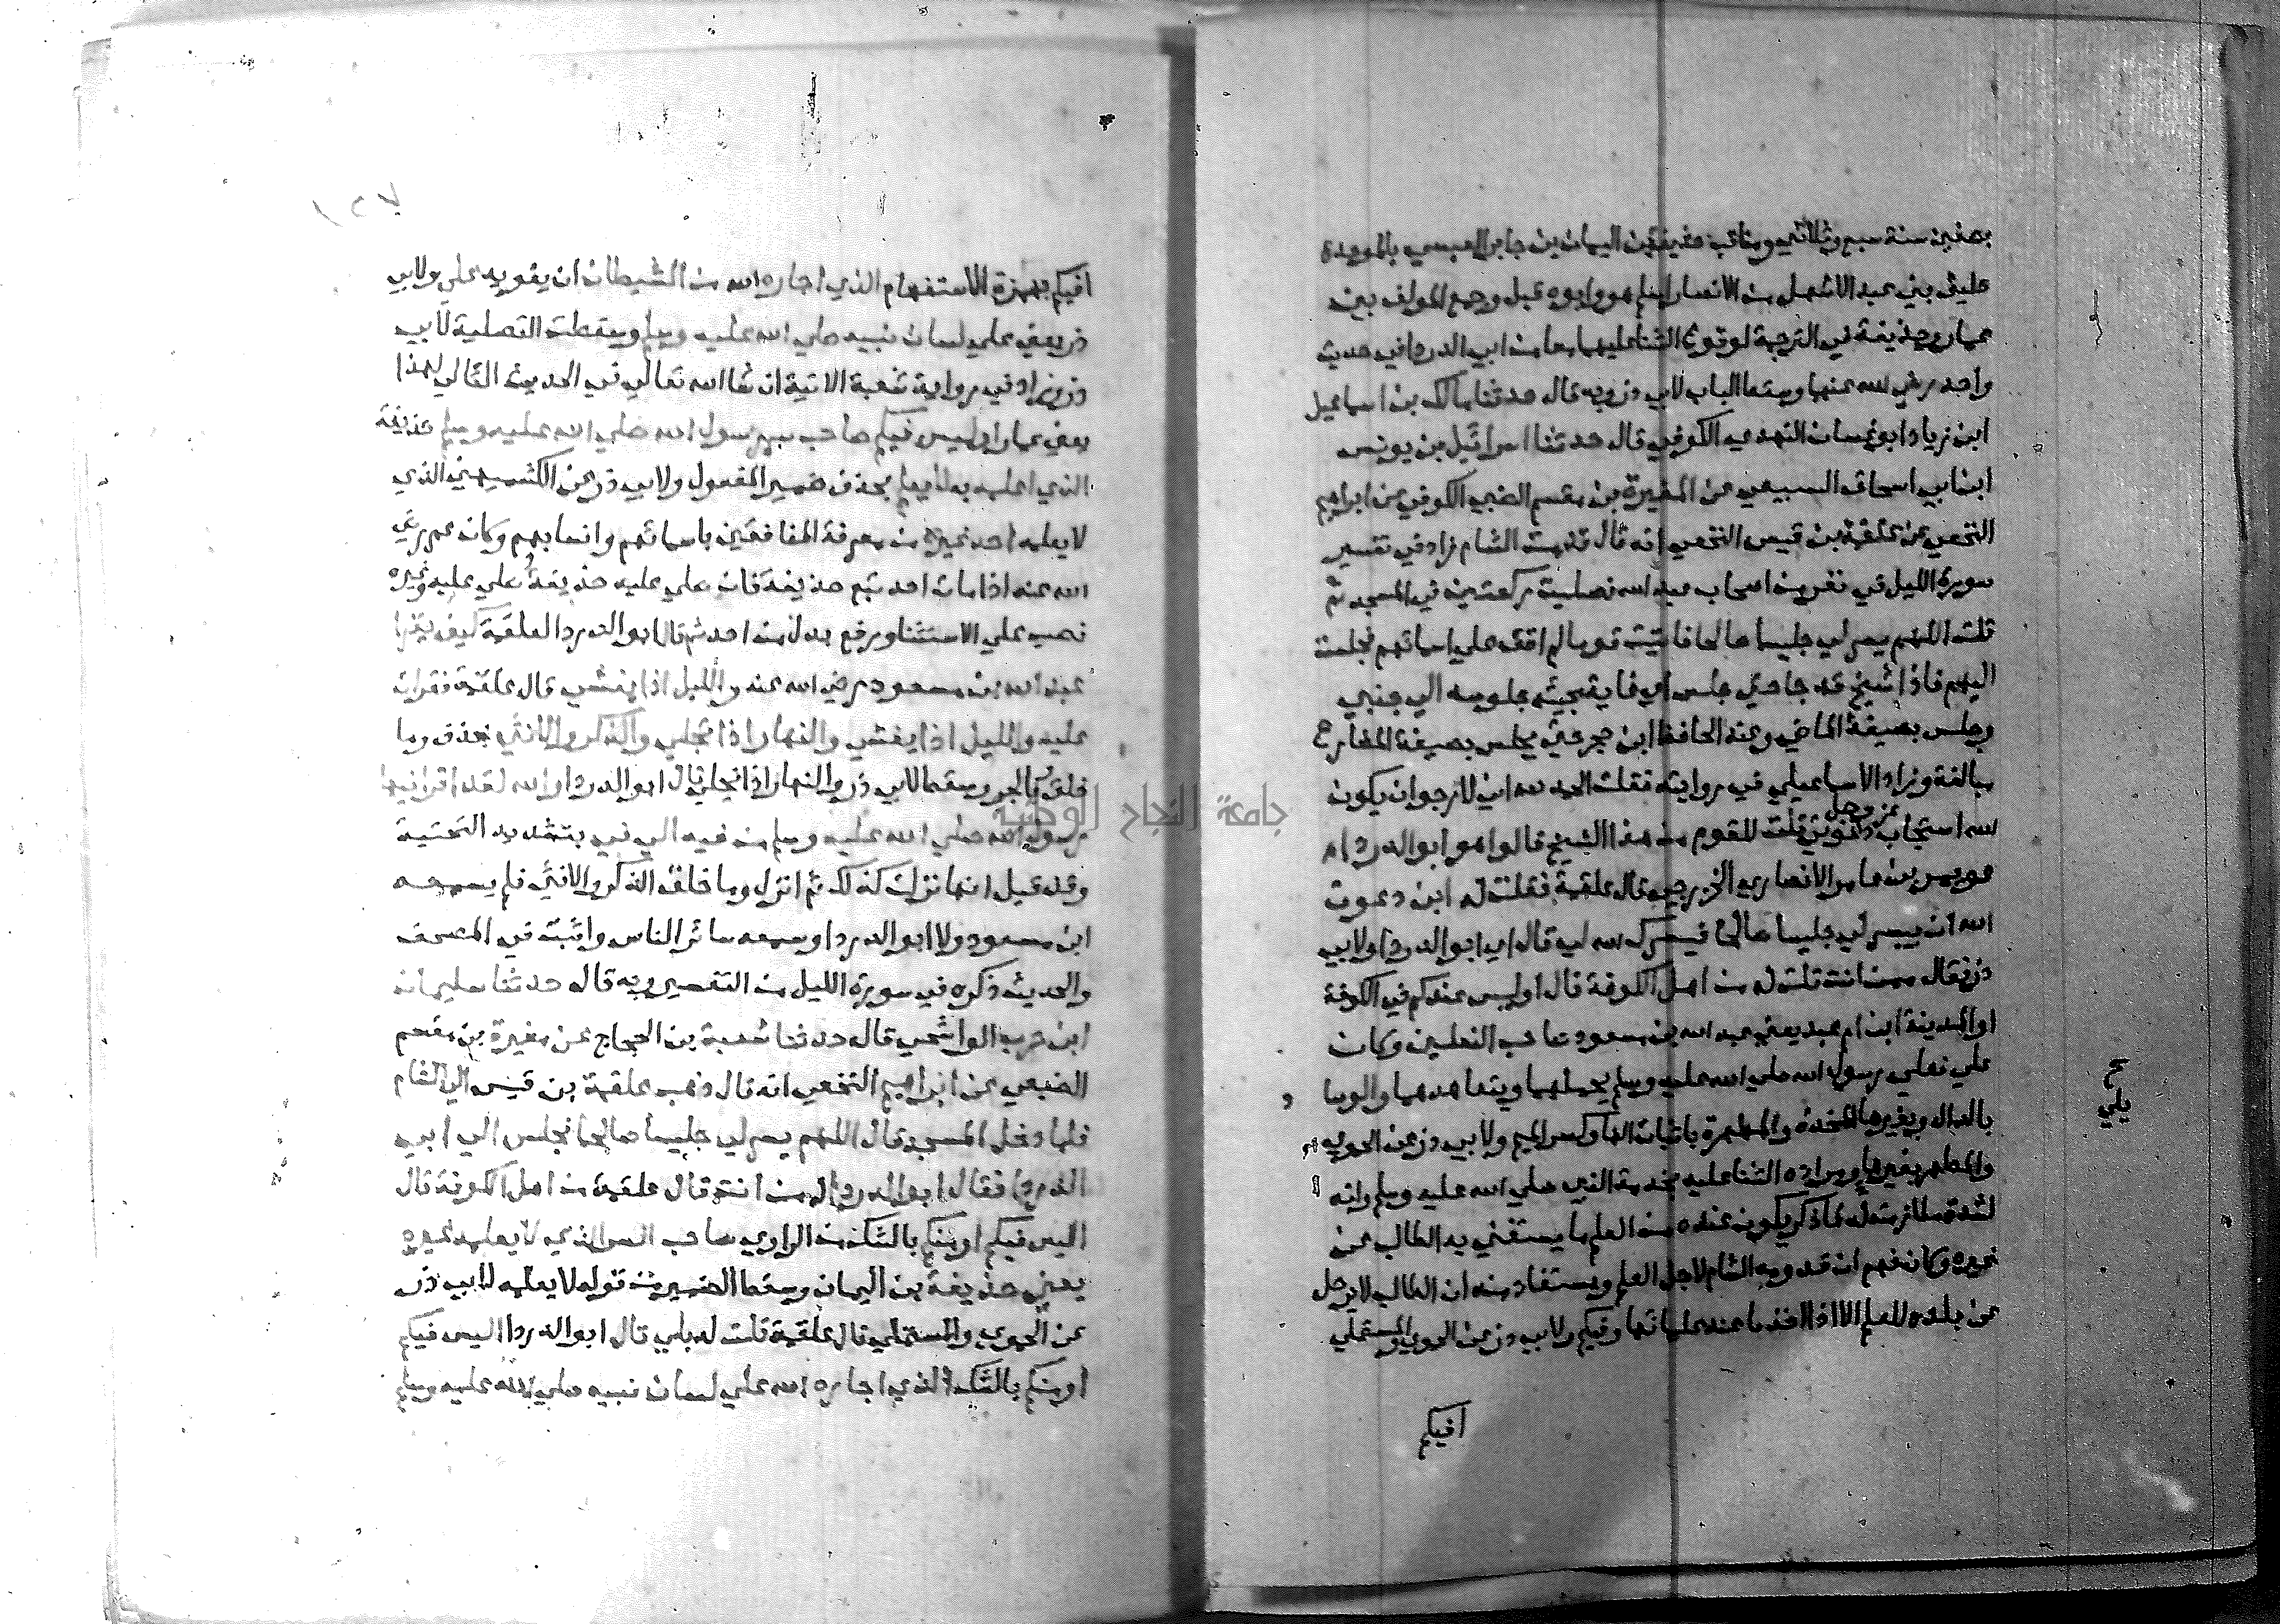 بصفين سنة سبع وثلاثين ومناقب حذيفة بن اليمان بن جابر العبسي بالموحدة
حليف بني عبد الاشهل من الانصار اسلم هو وابوه قبل وجمع المولف بين
عمار وحذيفة في الترجمة لوقوع الثنا عليهما معا من ابي الدردا في حديث
واحد رضي الله عنهما وسقط الباب لابي ذر وبه قال حدثنا مالك بن اسماعيل
ابن زياد ابو غسان النهدي الكوفي قال حدثنا اسرائيل بن يونس
ابن ابي اسحاق السبيعي عن المغيرة بن مقسم الضبي الكوفي عن ابراهيم
النخعي عن علقمة بن قيس النخعي انه قال قدمت الشام زاد في تفسير
سورة الليل في نفر من اصحاب عبد الله فصليت ركعتين في المسجد ثم
قلت اللهم يسر لي جليسا صالحا فاتيت قوما لم اقف على اسمائهم فجلست
اليهم فاذا شيخ قد جا حتى جلس اي غاية مجيئه جلوسه الي جنبي
وجلس بصيغة الماضي وعند الحافظ ابن حجر حتى يجلس بصيغة المضارع
مبالغة وزاد الاسماعيلي في روايته فقلت الحمد لله اني لارجوا ان يكون
الله عز وجل استجاب دعوتي قلت للقوم من هذا الشيخ قالوا هو ابو الدرداء
عويمر بن عامر الانصاري الخزرجي قال علقمة فقلت له اني دعوت
الله ان ييسر لي جليسا صالحا فيسرك الله لي قال اي ابو الدرداء ولابي
ذر فقال ممن انت قلت له من اهل الكوفة قال اوليس عندكم في الكوفة
او المدينة ابن ام عبد يعني عبد الله بن مسعود صاحب النعلين وكان
علي نعلي رسول الله صلي الله عليه وسلم يحملهما ويتعاهدهما والوسا
بالدال وبغيرها المخدة والمطهرة باثبات الها وكسر الميم ولابي ذر عن الحموي
والمطهر بغيرها ومراده الثنا عليه بخدمة النبي صلي الله عليه وسلم وانه
لشدة ملازمته له لما ذكر يكون عنده من العلم ما يستغني به الطالب عن
غيره وكان فهم ان قدومه الشام لاجل العلم ويستفاد منه ان الطالب لا يرحل
عن بلده للعلم الا اذا اخذ ما عند علمائها وفيكم ولابي ذر عن الحموي والمستملي
افيكم
صح
يلي
افيكم بهمزة الاستفهام الذي اجاره الله من الشيطان ان يغويه علي ولابي
ذر يعني علي لسان نبيه صلي الله عليه وسلم وسقطت التصلية لابي
ذر زاد في رواية شعبة الاتية ان شا الله تعالي في الحديث التالي لهذا
يعني عمارا اوليس فيكم صاحب سر رسول الله صلي الله عليه وسلم حذيفة
الذي اعلمه به لا يعلم بحذف ضمير المفعول ولابي ذر عن الكشميهني الذي
لا يعلمه احد غيره من معرفة المنافقين باسمائهم وانسابهم وكان عمر رضي
الله عنه اذا مات احد تبع حذيفة فان صلي عليه حذيفة صلي عليه وغيره
نصب علي الاستثنا ورفع بدل من احد ثم قال ابو الدردا لعلقمة كيف يقرا
عبد الله بن مسعود رضي الله عنه والليل اذا يغشي قال علقمة فقرات
عليه والليل اذا يغشي والنهار اذا تجلي والذكر والانثي بحذف وما
خلق بالجر وسقط لابي ذر والنهار اذا تجلي قال ابو الدرداء والله لقد اقرانيها
رسول الله صلي الله عليه وسلم من فيه الي في بتشديد التحتية
وقد قيل انها نزلت كذلك ثم انزل وما خلق الذكر والانثي فلم يسمعه
ابن مسعود ولا ابو الدردا وسمعه سائر الناس واثبت في المصحف
والحديث ذكره في سورة الليل من التفسير وبه قال حدثنا سليمان
ابن حرب الواشحي قال حدثنا شعبة بن الحجاج عن مغيرة بن مقسم
الضبعي عن ابراهيم النخعي انه قال ذهب علقمة بن قيس الي الشام
فلما دخل المسجد قال اللهم يسر لي جليسا صالحا فجلس الي ابي
الدردا فقال ابو الدرداء له من انت قال علقمة من اهل الكوفة قال
اليس فيكم او منكم بالشك من الراوي صاحب السر الذي لا يعلمه غيره
يعني حذيفة بن اليمان وسقط الضمير من قوله لا يعلمه لابي ذر
عن الحموي والمستملي قال علقمة قلت له بلي قال ابو الدردا اليس فيكم
او منكم بالشك الذي اجاره الله علي لسان نبيه صلي الله عليه وسلم
جامعة النجاح الوطنية